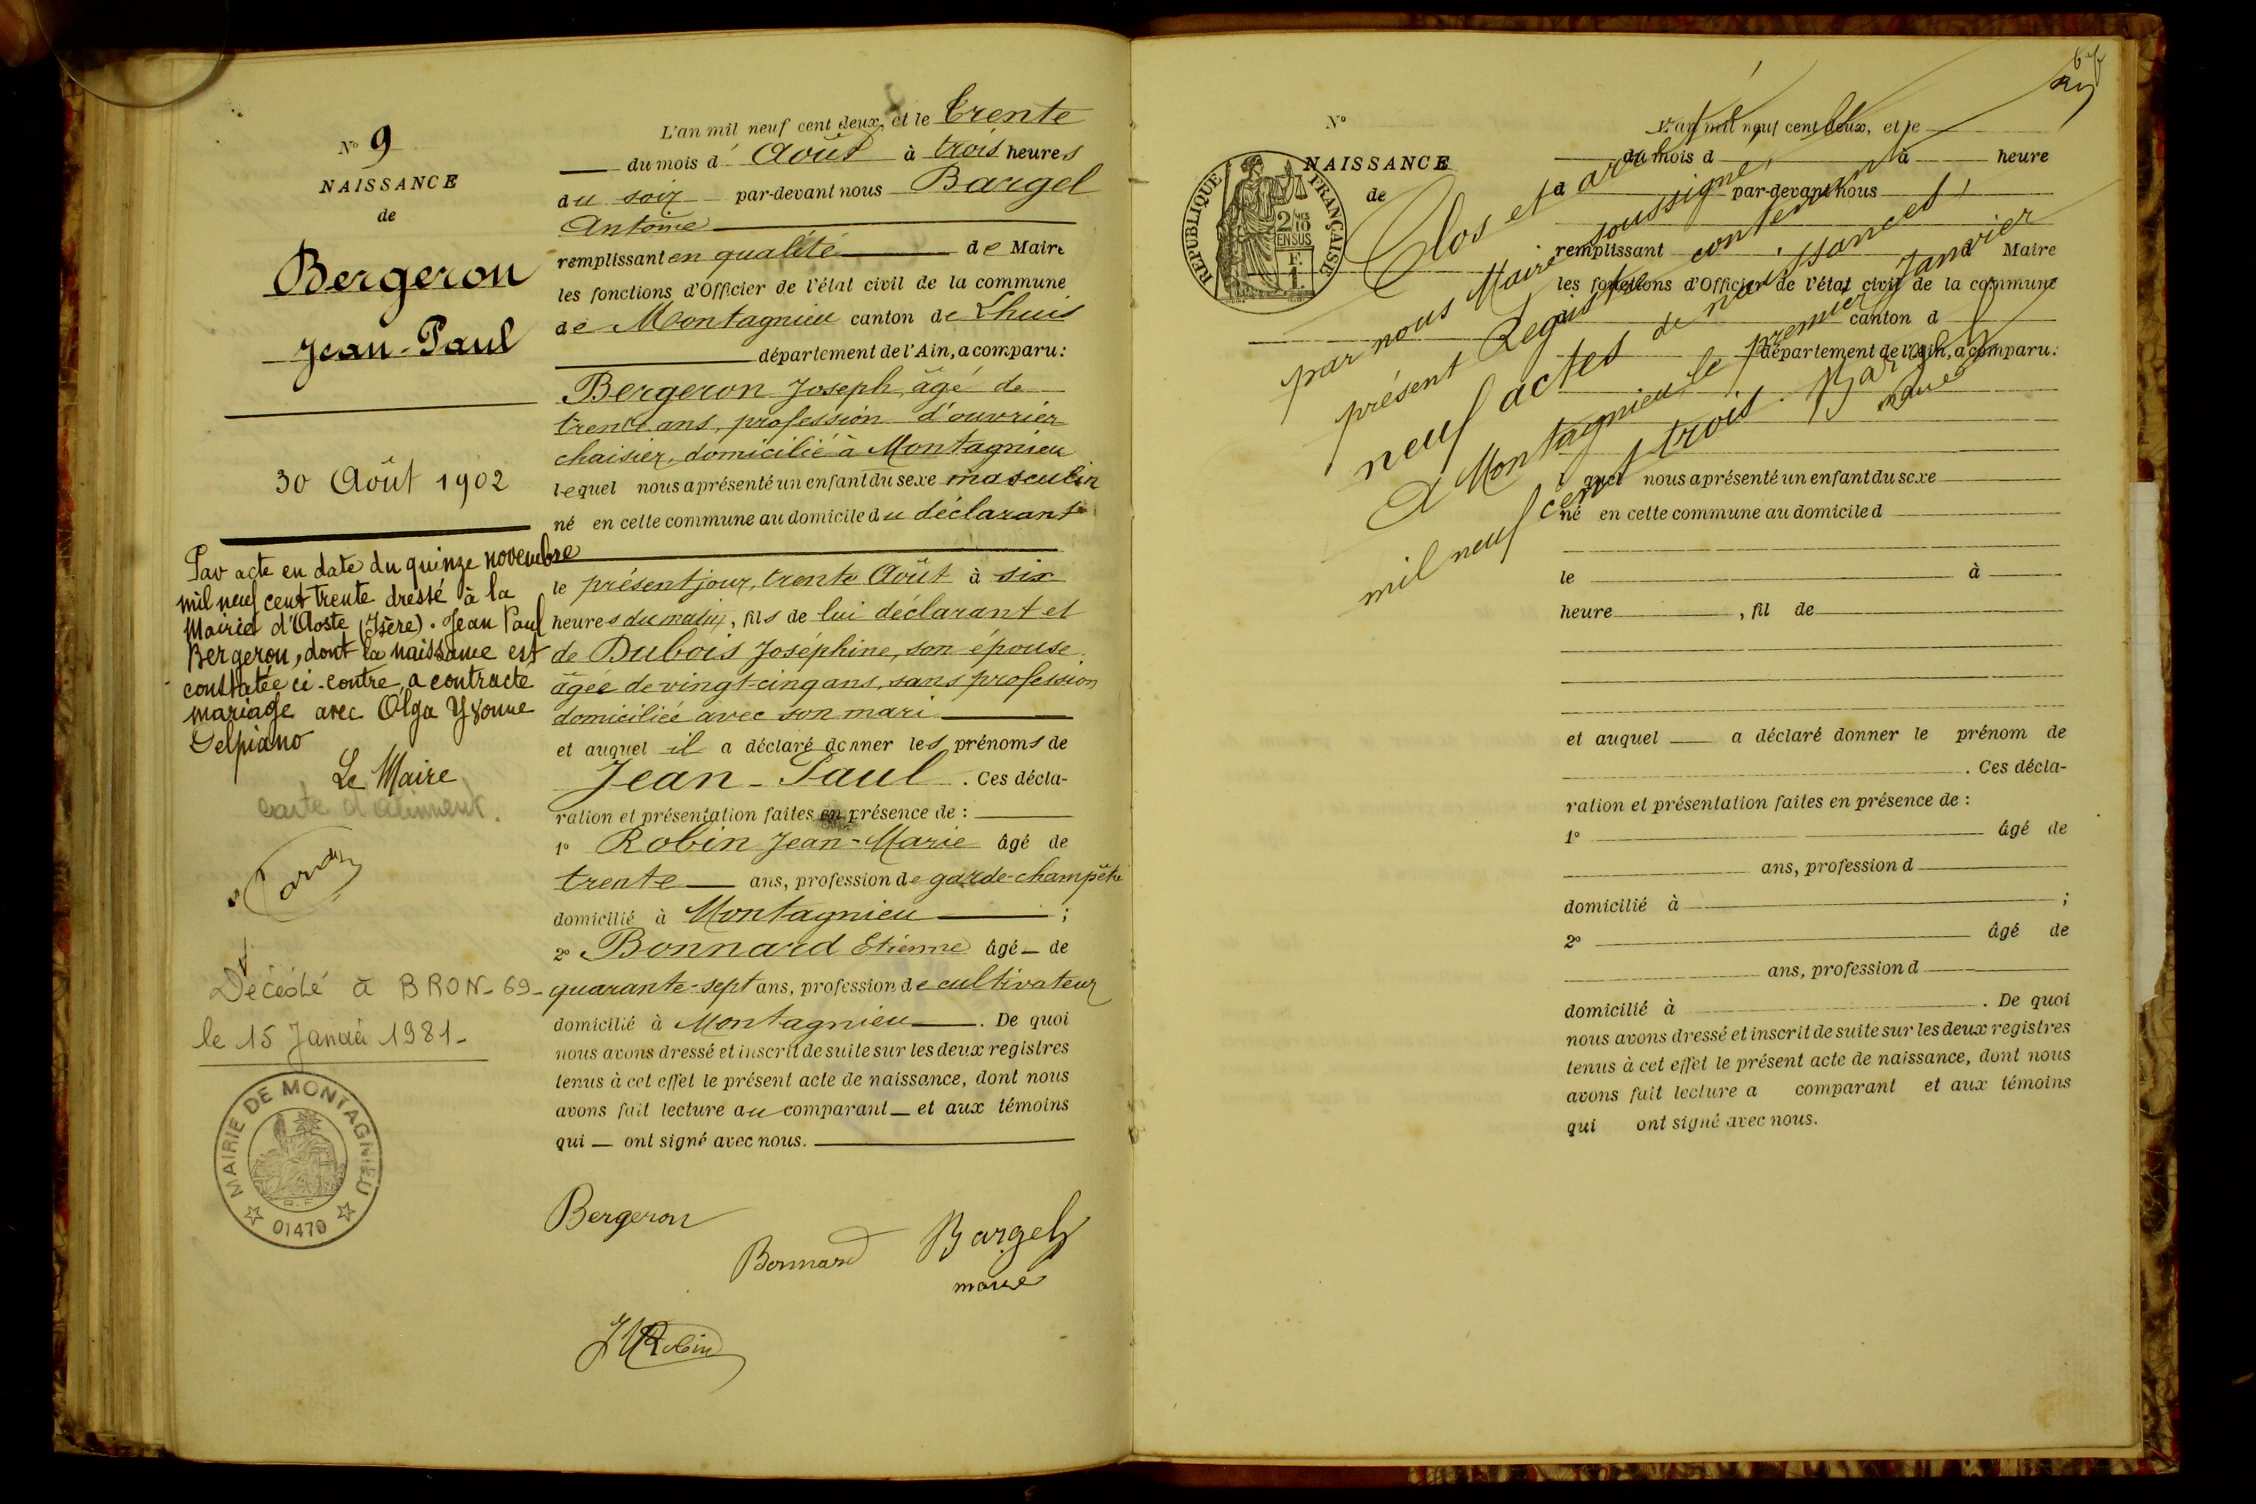 N° 9
NAISSANCE
de
Bergeron
Jean-Paul
30 Août 1902
Par acte en date du quinze novembre
mil neuf cent trente dressé à la
Mairie d'Aoste (Isère). Jean Paul
Bergeron, dont la naissance est
constatée ci-contre, a contracté
mariage avec Olga Yvonne
Delpiano
Le Maire
carte d'aliment.
Décédé à BRON-69-
le 15 Janvier 1981-
MAIRIE DE MONTAGNIEU
R.F.
01470
L'an mil neuf cent deux, et le trente
du mois d' Août à trois heures
du soir par-devant nous Bargel
Antoine
remplissant en qualité de Maire
les fonctions d'Officier de l'état civil de la commune
de Montagnieu canton de Lhuis
département de l'Ain, a comparu:
Bergeron Joseph, âgé de
trente ans, profession d'ouvrier
chaisier, domicilié à Montagnieu
lequel nous a présenté un enfant du sexe masculin
né en cette commune au domicile du déclarant
le présent jour, trente Août à six
heures du matin, fils de lui déclarant et
de Dubois Joséphine, son épouse
âgée de vingt-cinq ans, sans profession
domiciliée avec son mari
et auquel il a déclaré donner les prénoms de
Jean-Paul. Ces décla-
ration et présentation faites en présence de :
1° Robin Jean-Marie âgé de
trente ans, profession de garde-champêtre
domicilié à Montagnieu ;
2° Bonnard Etienne âgé de
quarante-sept ans, profession de cultivateur
domicilié à Montagnieu. De quoi
nous avons dressé et inscrit de suite sur les deux registres
tenus à cet effet le présent acte de naissance, dont nous
avons fait lecture au comparant et aux témoins
qui ont signé avec nous.
Bergeron
Bonnard
Bargel
maire
JM Robin
N°
NAISSANCE
de
RÉPUBLIQUE FRANÇAISE
2/10
EN SUS
F.
1.
Clos et arrêté, le
par nous Maire soussigné,
présent Registre contenant
neuf actes de naissances,
A Montagnieu, le premier Janvier
mil neuf cent trois. Bargel
maire
L'an mil neuf cent deux, et le
du mois d à heure
d par-devant nous
remplissant d Maire
les fonctions d'Officier de l'état civil de la commune
canton d
département de l'Ain, a comparu:
l quel nous a présenté un enfant du sexe
né en cette commune au domicile d
le à
heure , fil de
et auquel a déclaré donner le prénom de
. Ces décla-
ration et présentation faites en présence de :
1° âgé de
ans, profession d
domicilié à ;
2° âgé de
ans, profession d
domicilié à . De quoi
nous avons dressé et inscrit de suite sur les deux registres
tenus à cet effet le présent acte de naissance, dont nous
avons fait lecture a comparant et aux témoins
qui ont signé avec nous.